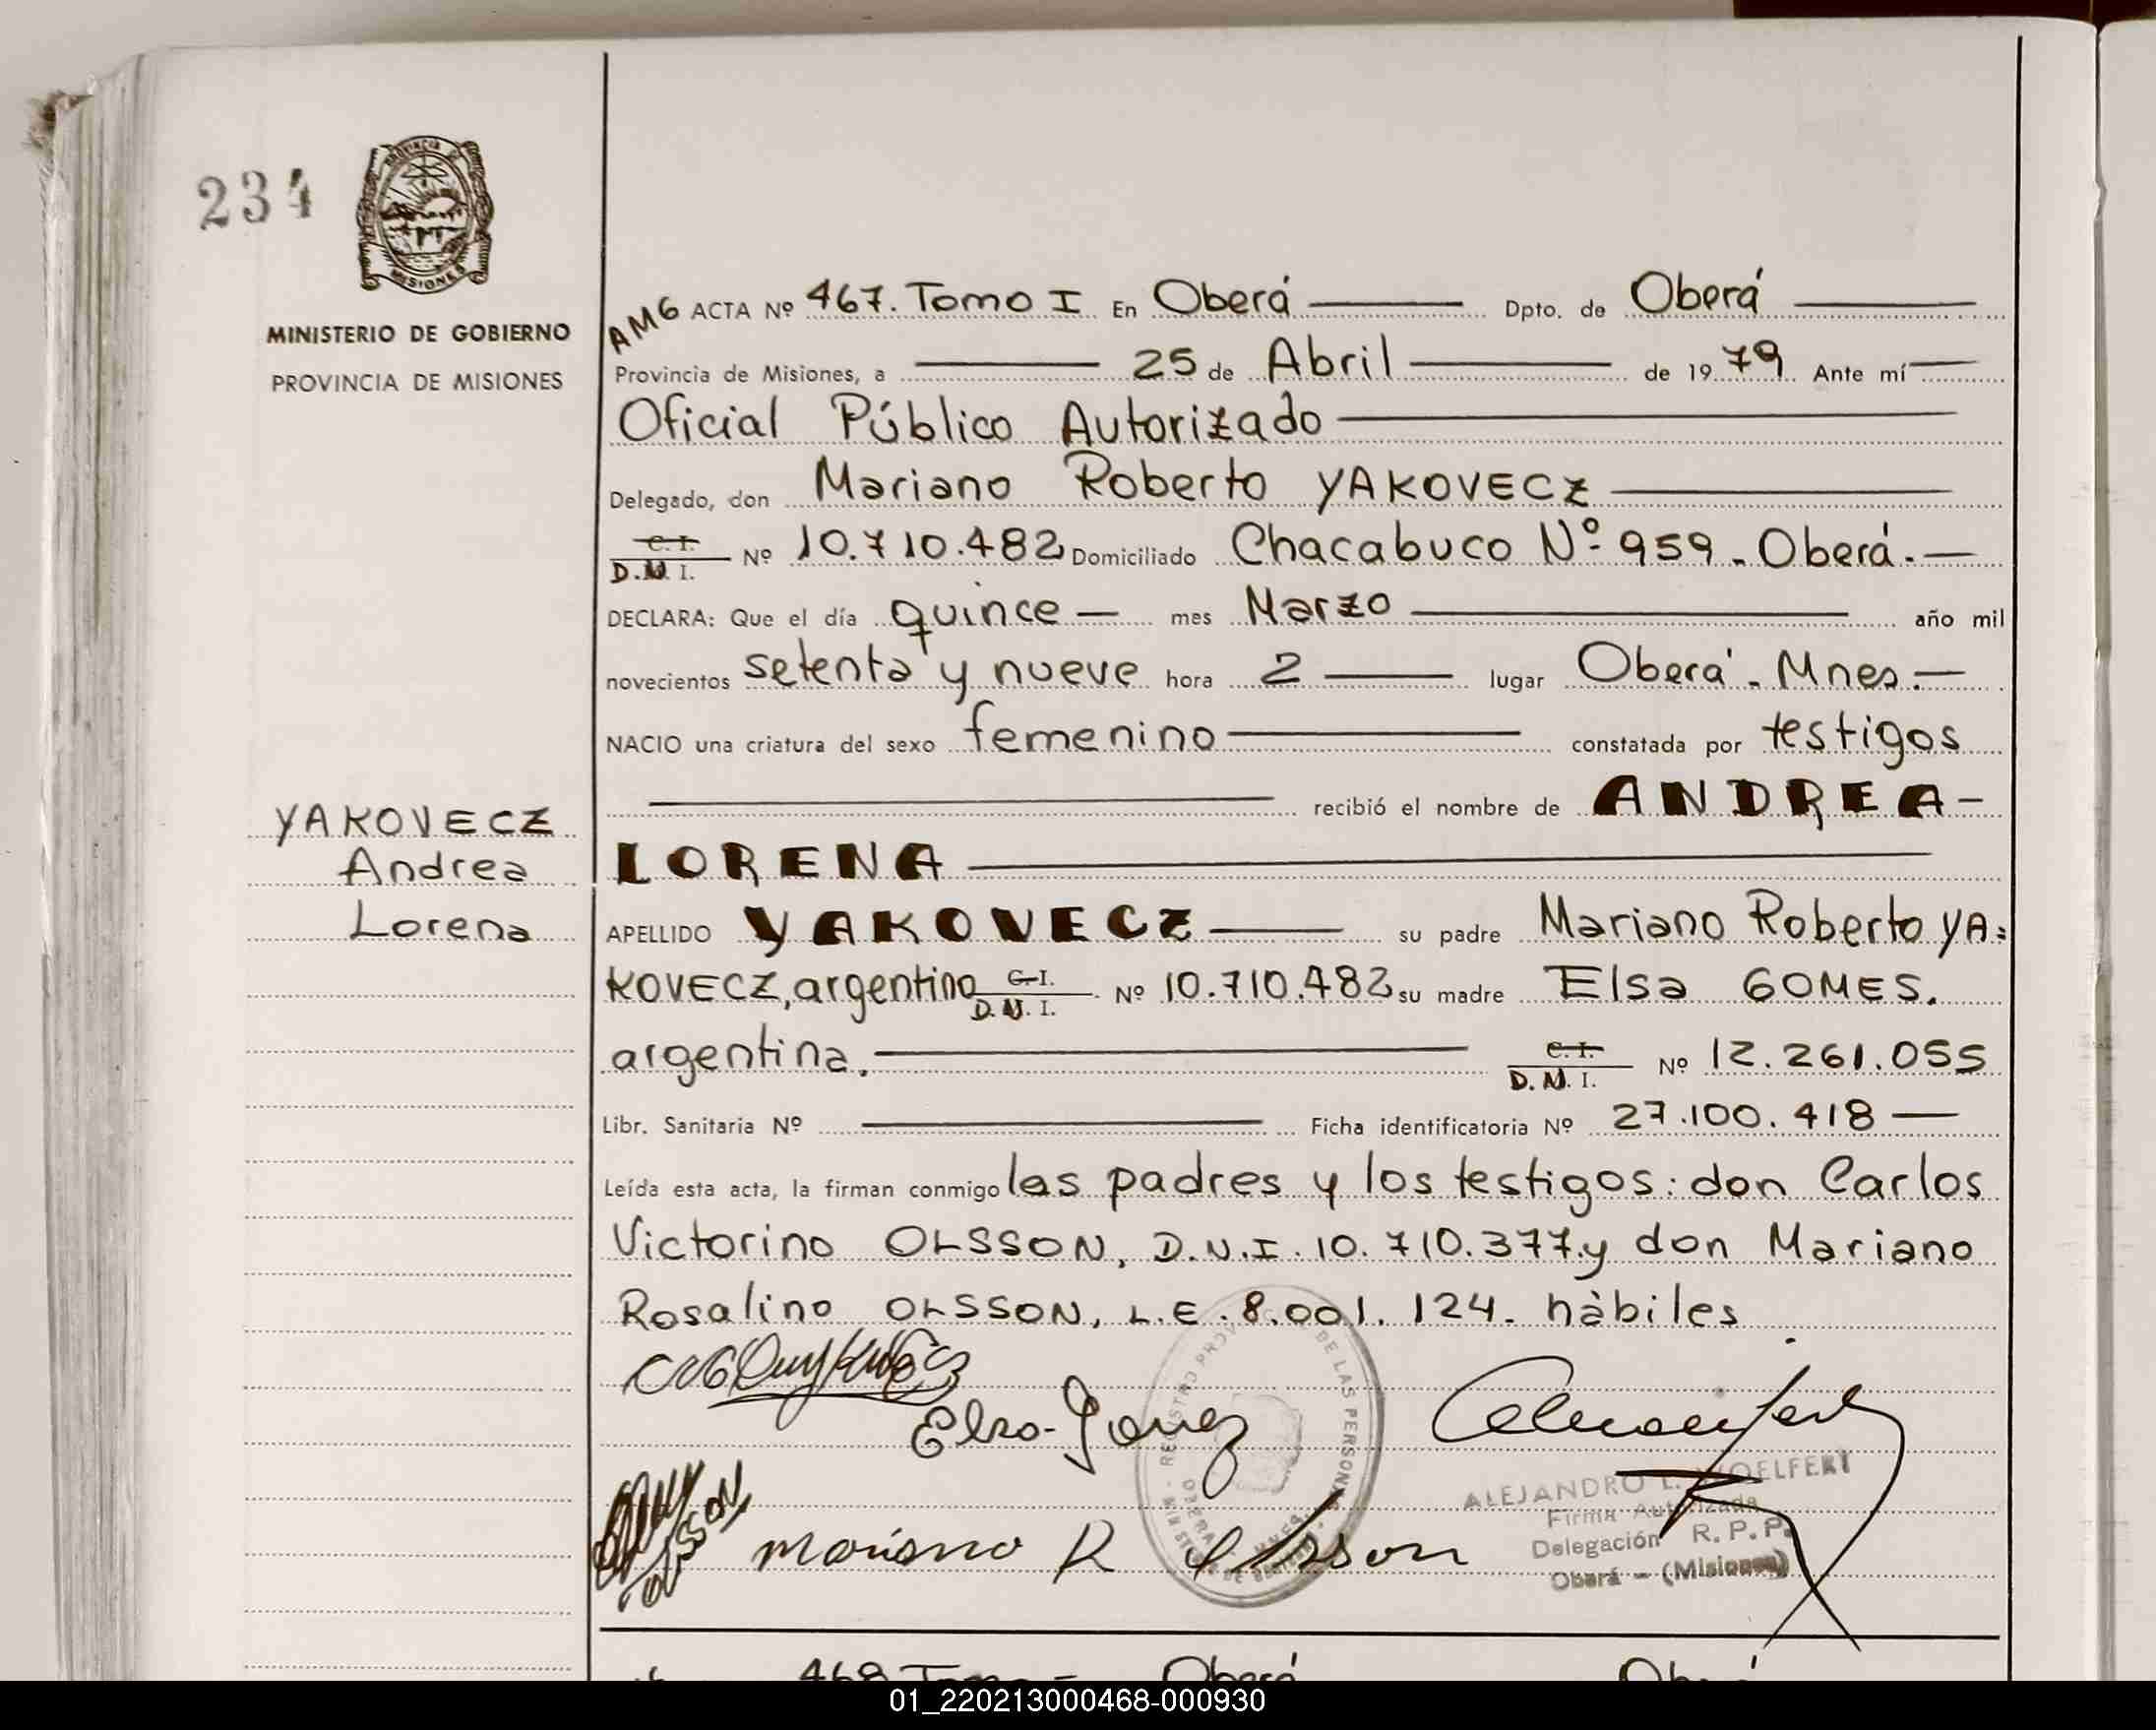 234
PROVINCIA DE
MISIONES
MINISTERIO DE GOBIERNO
PROVINCIA DE MISIONES
YAKOVECZ
Andrea
Lorena
AMG ACTA Nº 467. Tomo I En Oberá Dpto. de Oberá
Provincia de Misiones, a 25 de Abril de 1979 Ante mí
Oficial Público Autorizado
Delegado, don Mariano Roberto YAKOVECZ
C. I.
D.N.I. Nº 10.710.482 Domiciliado Chacabuco Nº 959 - Oberá.
DECLARA: Que el día quince mes Marzo año mil
novecientos setenta y nueve hora 2 lugar Oberá - Mnes.
NACIO una criatura del sexo femenino constatada por testigos
recibió el nombre de ANDREA-
LORENA
APELLIDO YAKOVECZ su padre Mariano Roberto YA=
KOVECZ, argentino C.I. D.N.I. Nº 10.710.482 su madre Elsa GOMES.
argentina. C.I. D.N.I. Nº 12.261.055
Libr. Sanitaria Nº Ficha identificatoria Nº 27.100.418
Leída esta acta, la firman conmigo los padres y los testigos: don Carlos
Victorino OLSSON, D.N.I. 10.710.377 y don Mariano
Rosalino OLSSON, L.E. 8.001.124. hàbiles
Elsa Gomez
OLSSON
Mariano R Olsson
DE LAS PERSONAS
ALEJANDRO L. WOELFERT
Firma Autorizada
Delegación R. P. P.
Oberá - (Misiones)
468 Tomo Oberá Oberá
01_220213000468-000930